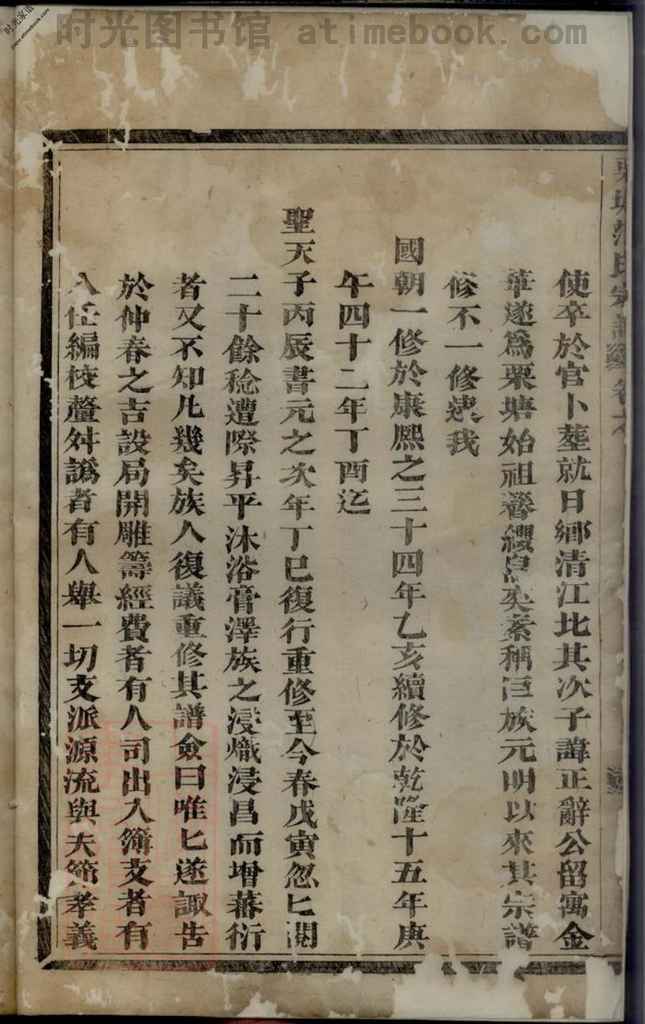 时光图书馆 atimebook.com
使卒於官卜葬就日鄉清江北其次子諱正辭公留寓金
華遂為栗塘始祖簪纓奕素稱巨族元明以來其宗譜
修不一修逮我
國朝一修於康熙之三十四年乙亥續修於乾隆十五年庚
午四十二年丁酉迄
聖天子丙辰書元之次年丁巳復行重修至今春戊寅忽已閱
二十餘稔遭際昇平沐浴膏澤族之浸熾浸昌而增蕃衍
者又不知凡幾矣族人復議重修其譜僉曰唯已遂諏吉
於仲春之吉設局開雕籌經費者有人司出入簿支者有
人任編校釐舛譌者有人舉一切支派源流與夫節孝義